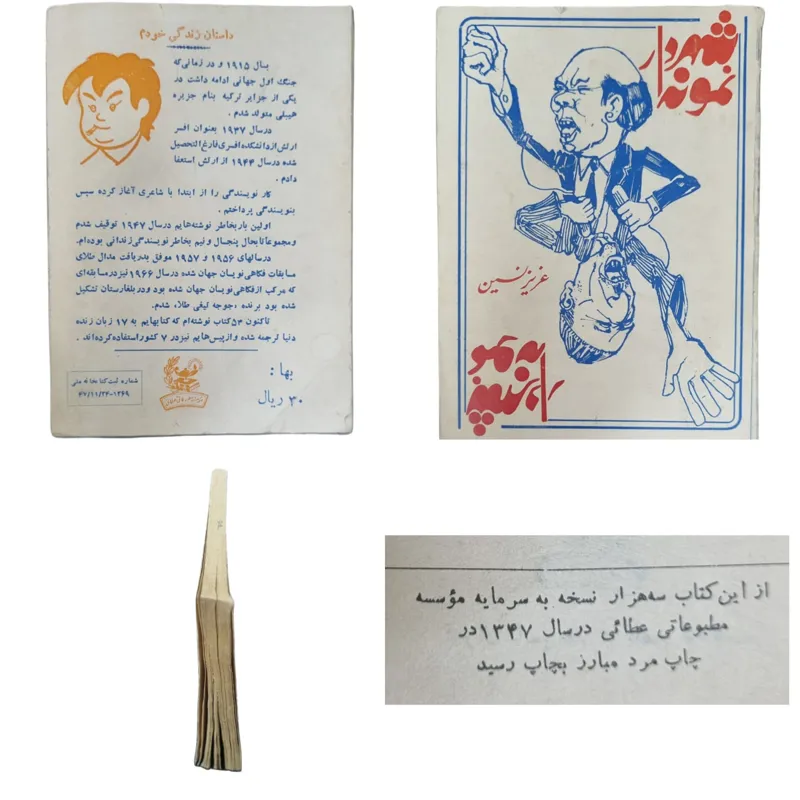 داستان زندگی خودم
بسال ۱۹۱۵ و در زمانی‌که
جنگ اول جهانی ادامه داشت در
یکی از جزایر ترکیه بنام جزیره
هیبلی متولد شدم .
درسال ۱۹۳۷ بعنوان افسر
ارتش ازدانشکده افسری فارغ‌التحصیل
شده درسال ۱۹۴۴ از ارتش استعفا
دادم .
کار نویسندگی را از ابتدا با شاعری آغاز کرده سپس
بنویسندگی پرداختم .
اولین بار بخاطر نوشته‌هایم درسال ۱۹۴۷ توقیف شدم
ومجموعاتابحال پنجسال ونیم بخاطر نویسندگی زندانی بوده‌ام.
درسالهای ۱۹۵۶ و ۱۹۵۷ موفق بدریافت مدال طلای
مسابقات فکاهی‌نویسان جهان شده درسال ۱۹۶۶ نیزدرمسابقه‌ای
که مرکب ازفکاهی‌نویسان جهان شده بود ودربلغارستان تشکیل
شده بود برنده ،جوجه تیغی طلا، شدم.
تاکنون ۵۳کتاب نوشته‌ام که کتابهایم به ۱۷ زبان زنده
دنیا ترجمه شده وازپیس‌هایم نیزدر ۷ کشوراستفاده‌کرده‌اند .
بها :
۳۰ ریال
شماره ثبت کتابخانه ملی
۱۲۶۹-۴۷/۱۱/۲۴
شهردار
نمونه
عزیز نسین
از این کتاب سه‌هزار نسخه به سرمایه مؤسسه
مطبوعاتی عطائی درسال ۱۳۴۷در
چاپ مرد مبارز بچاپ رسید